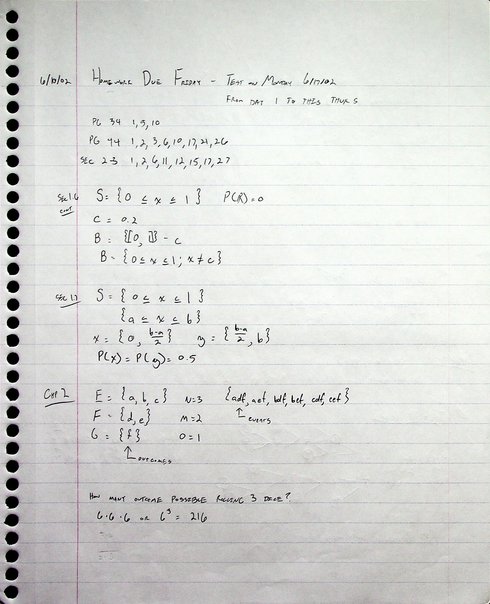 6/10/02 HOMEWORK DUE FRIDAY - TEST ON MONDAY 6/17/02
FROM DAY 1 TO THIS THURS
PG 34 1, 5, 10
PG 44 1, 2, 3, 6, 10, 17, 21, 26
SEC 2-3 1, 2, 6, 11, 12, 15, 17, 27
SEC 1.6 S = {0 ≤ x ≤ 1} P(R) = 0
CONT
C = 0.2
B = {[0, 1]} - C
B = {0 ≤ x ≤ 1; x ≠ c}
SEC 1.7 S = {0 ≤ x ≤ 1}
{a ≤ x ≤ b}
x = {0, b-a/2} y = {b-a/2, b}
P(x) = P(y) = 0.5
CH 2 E = {a, b, c} N=3 {adf, aef, bdf, bef, cdf, cef}
F = {d, e} M=2 ↑ EVENTS
G = {f} O=1
↑ OUTCOMES
HOW MANY OUTCOME POSSIBLE ROLLING 3 DICE?
6·6·6 OR 6³ = 216